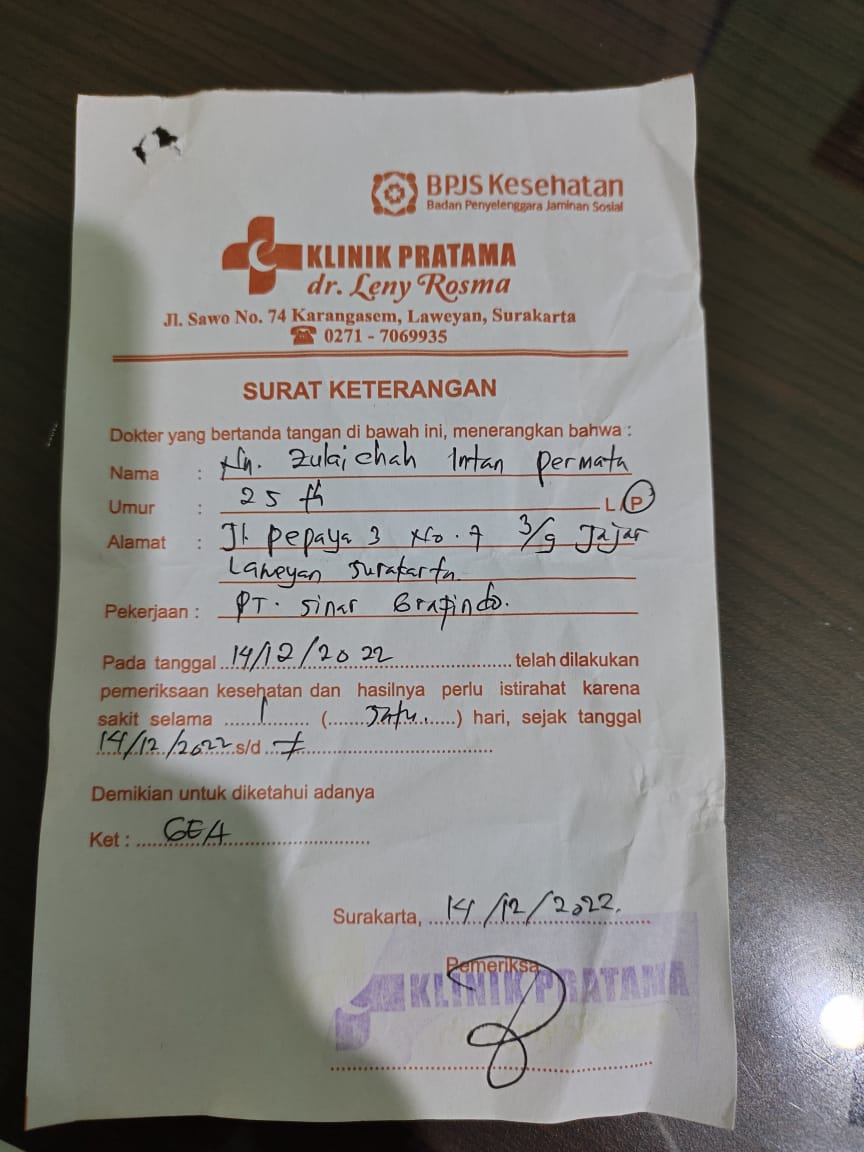 BPJS Kesehatan
Badan Penyelenggara Jaminan Sosial
KLINIK PRATAMA
dr. Leny Rosma
Jl. Sawo No. 74 Karangasem, Laweyan, Surakarta
☎ 0271 - 7069935
SURAT KETERANGAN
Dokter yang bertanda tangan di bawah ini, menerangkan bahwa :
Nama : Nn. Zulaichah Intan Permata
Umur : 25 th L/P
Alamat : Jl. Pepaya 3 No. 7 3/9 Jajar
Laweyan Surakarta
Pekerjaan : PT. Sinar Grafindo.
Pada tanggal 14/12/2022 telah dilakukan
pemeriksaan kesehatan dan hasilnya perlu istirahat karena
sakit selama 1 (satu) hari, sejak tanggal
14/12/2022 s/d
Demikian untuk diketahui adanya
Ket : GEA
Surakarta, 14/12/2022.
Pemeriksa
KLINIK PRATAMA